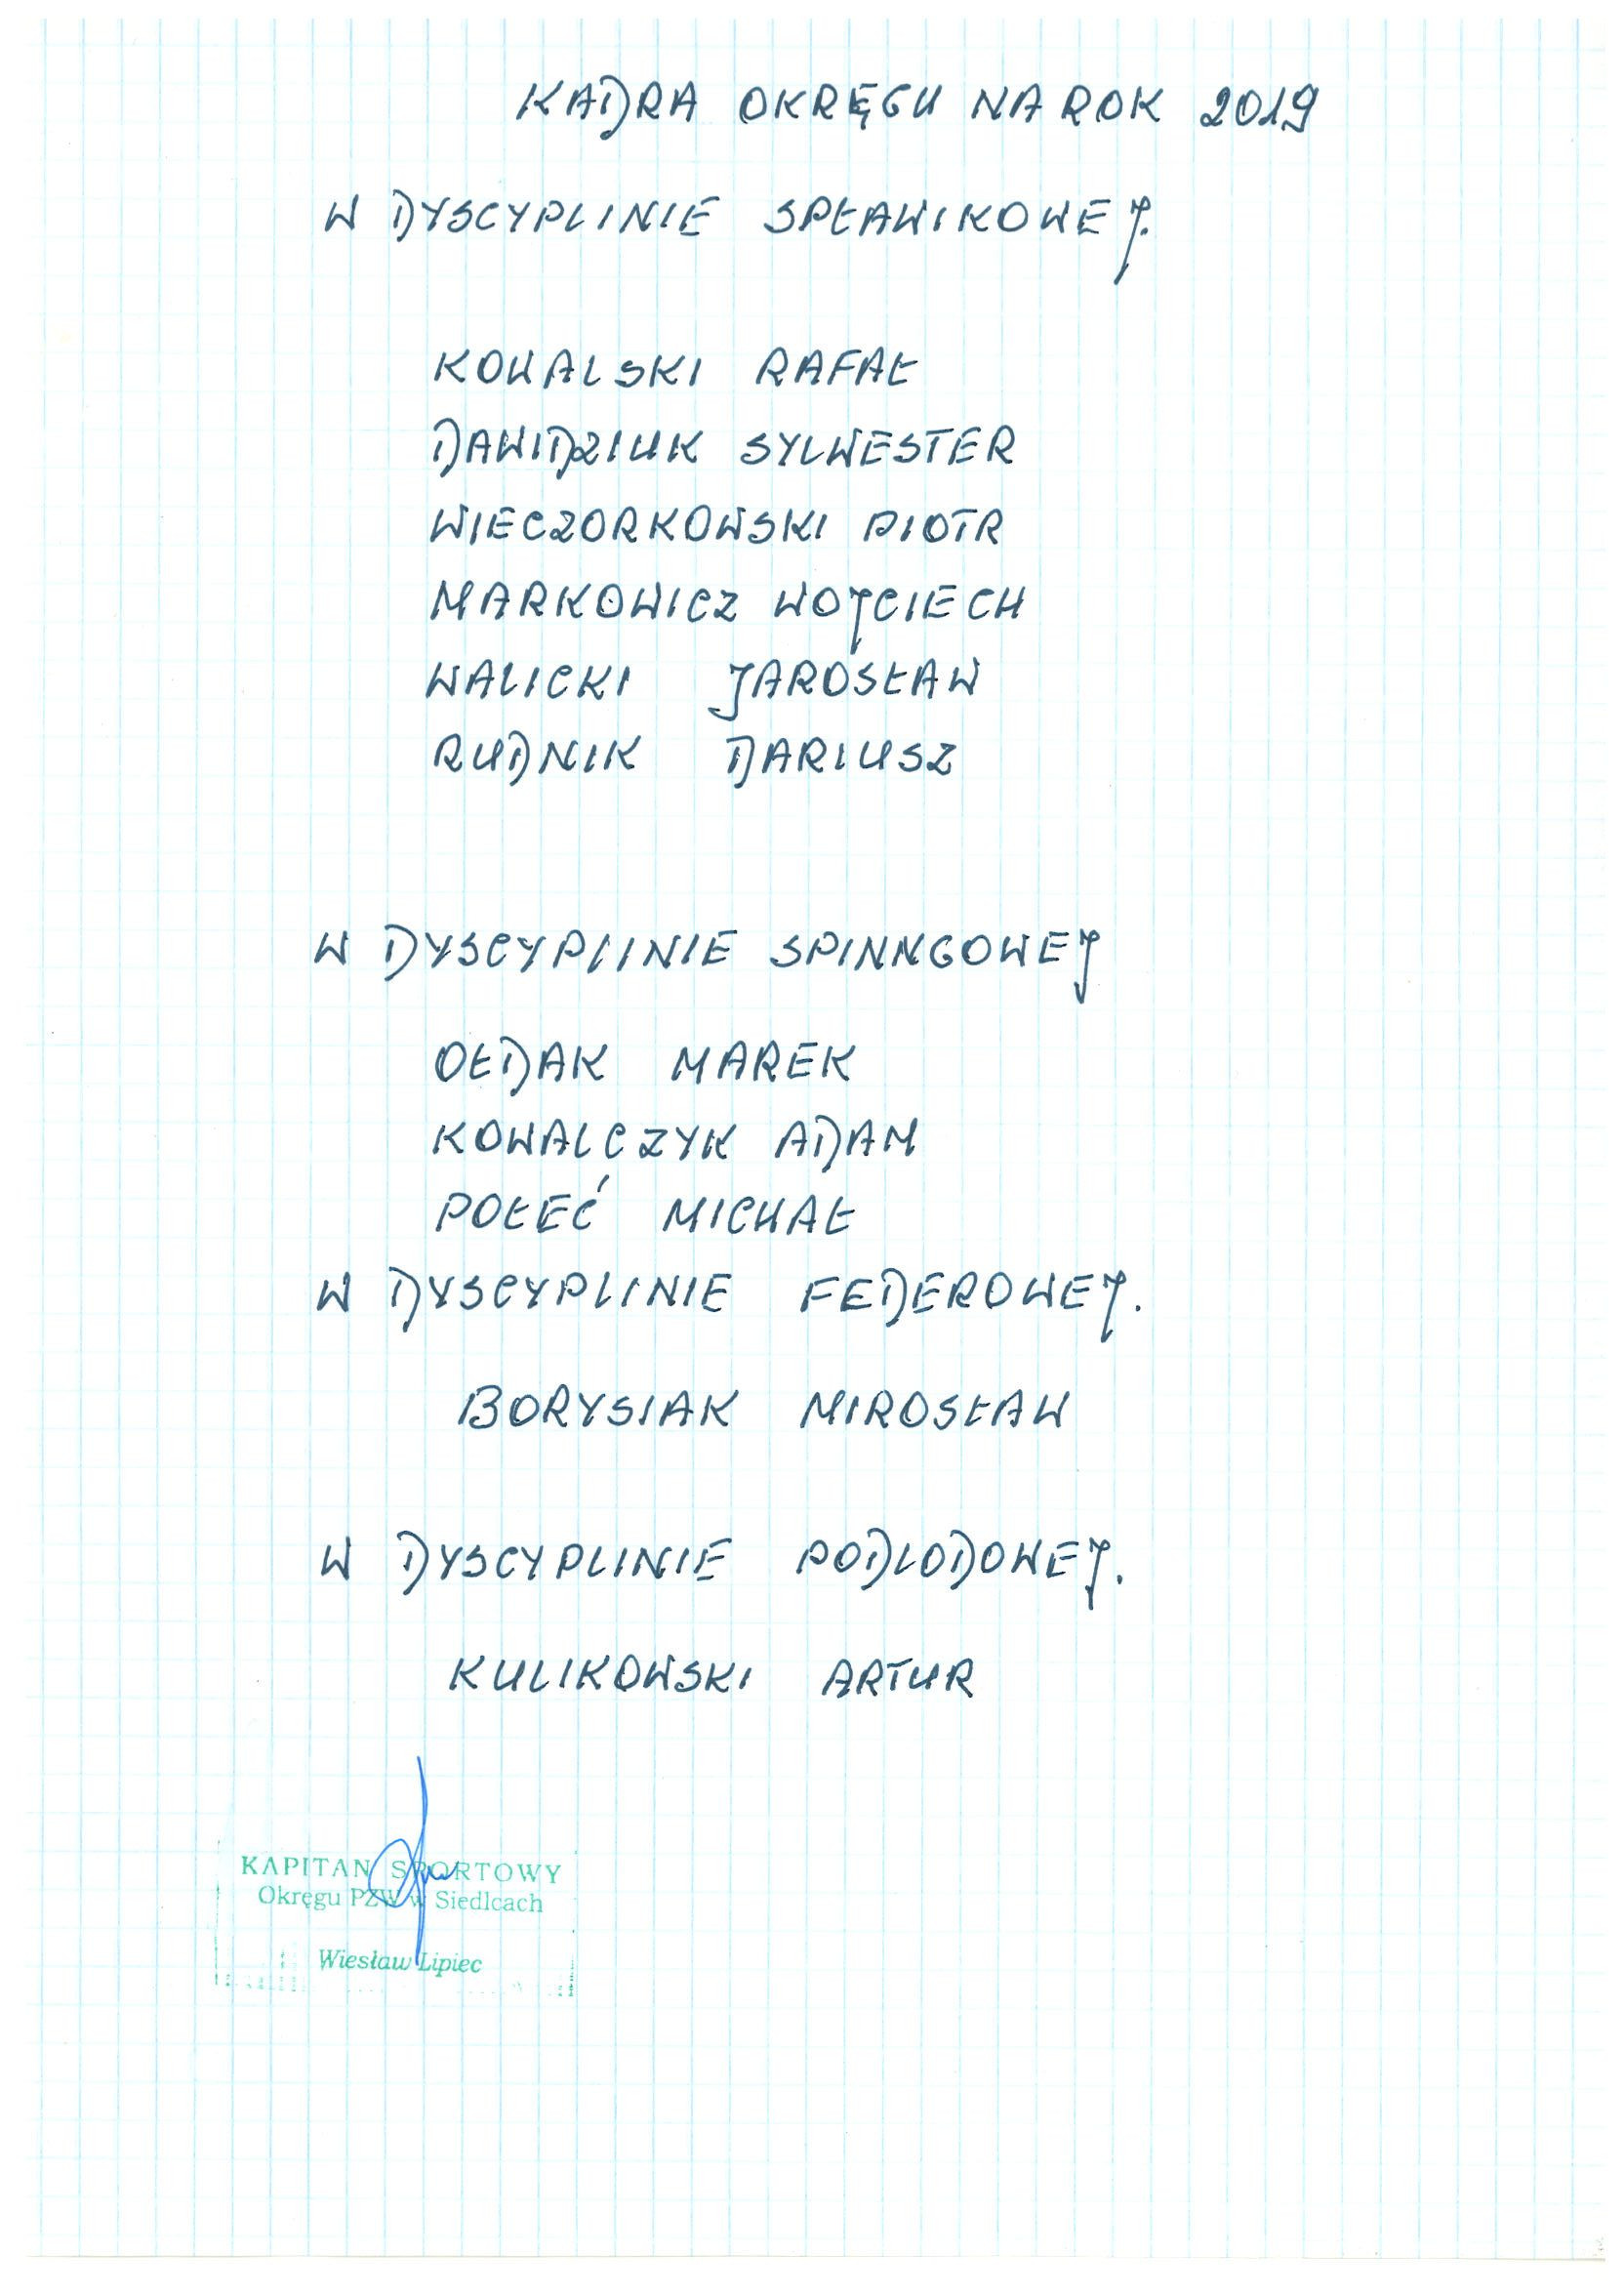 KADRA OKRĘGU NA ROK 2019
W DYSCYPLINIE SPŁAWIKOWEJ.
KOWALSKI RAFAŁ
DAWIDZIUK SYLWESTER
WIECZORKOWSKI PIOTR
MARKOWICZ WOJCIECH
WALICKI JAROSŁAW
RUDNIK DARIUSZ
W DYSCYPLINIE SPINNGOWEJ
OŁDAK MAREK
KOWALCZYK ADAM
POŁEĆ MICHAŁ
W DYSCYPLINIE FEDEROWEJ.
BORYSIAK MIROSŁAW
W DYSCYPLINIE PODLODOWEJ.
KULIKOWSKI ARTUR
KAPITAN SPORTOWY
Okręgu PZW w Siedlcach
Wiesław Lipiec